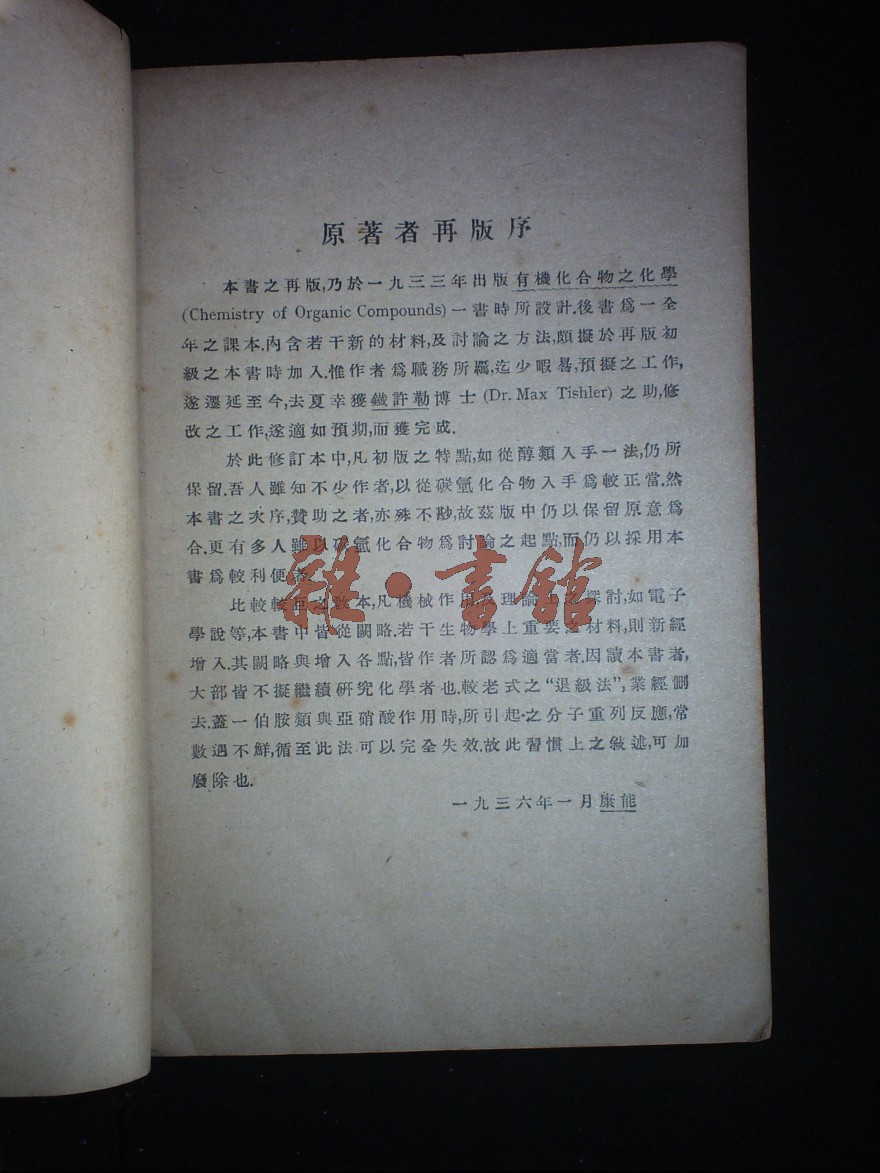 原著者再版序
本書之再版,乃於一九三三年出版有機化合物之化學
(Chemistry of Organic Compounds)一書時所設計.後書爲一全
年之課本.內含若干新的材料,及討論之方法,頗擬於再版初
級之本書時加入.惟作者爲職務所羈,迄少暇晷,預擬之工作,
遂遷延至今,去夏幸獲鐵許勒博士(Dr. Max Tishler)之助,修
改之工作,遂適如預期,而獲完成.
於此修訂本中,凡初版之特點,如從醇類入手一法,仍所
保留.吾人雖知不少作者,以從碳氫化合物入手爲較正當.然
本書之次序,贊助之者,亦殊不尠,故茲版中仍以保留原意爲
合.更有多人雖以碳氫化合物爲討論之起點,而仍以採用本
書爲較利便者.
比較較巨之教本,凡機械作用及理論上之探討,如電子
學說等,本書中皆從闕略.若干生物學上重要之材料,則新經
增入.其闕略與增入各點,皆作者所認爲適當者.因讀本書者,
大部皆不擬繼續研究化學者也.較老式之“退級法”,業經刪
去.蓋一伯胺類與亞硝酸作用時,所引起之分子重列反應,常
數遇不鮮,循至此法可以完全失效.故此習慣上之敍述,可加
廢除也.
一九三六年一月康能
雜·書館